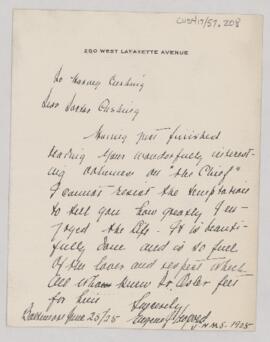 CUS417/57.208
250 WEST LAFAYETTE AVENUE
To Harvey Cushing
Dear Doctor Cushing
Having just finished
reading your wonderfully interest-
ing volumes on "the Chief"
I cannot resist the temptation
to tell you how greatly I en-
joyed the life. It is beauti-
fully done and is so full
of the love and respect which
all whom knew Dr. Osler feel
for him
Sincerely,
Baltimore June 25/25
Eugene
J.H.M.S. 1905